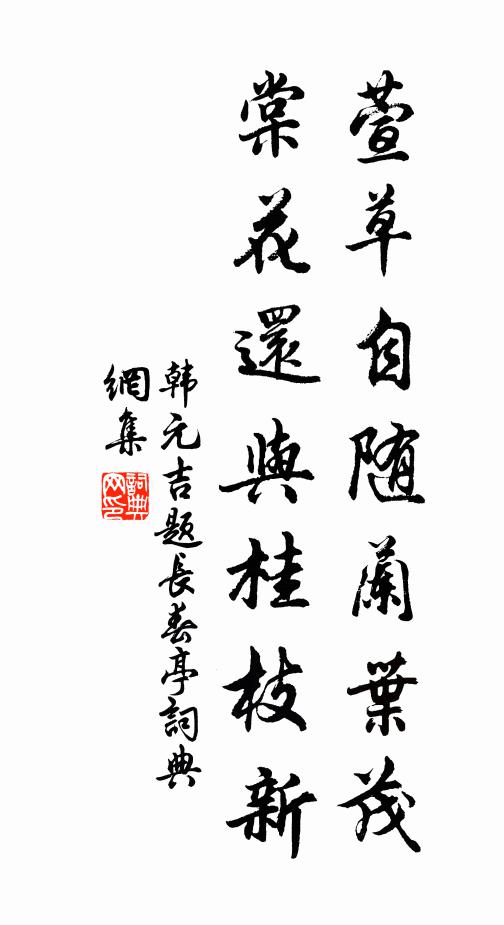 萱草自随蘭葉茂
棠花還與桂枝新
韩元吉题長春亭詞典
網集
詞典
网印